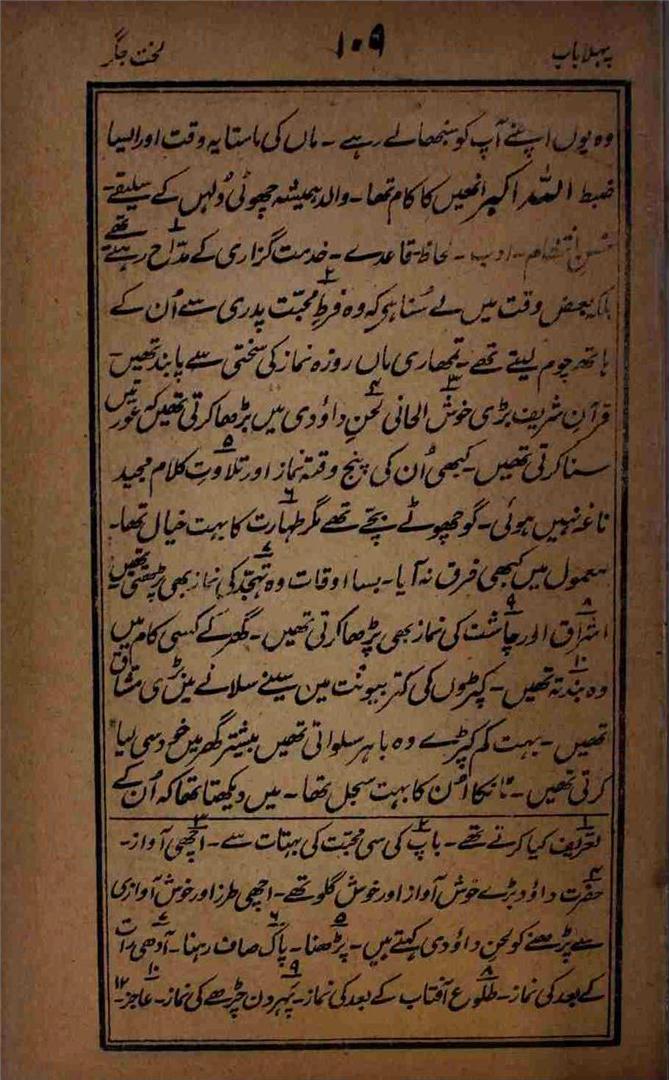 پہلا باب ۱۰۹ لخت جگر
وہ یوں اپنے آپ کو سنبھالے رہے۔ ماں کی مامتا یہ وقت اور ایسا
ضبط اللہ اکبر انھیں کا کام تھا۔ والد ہمیشہ چھوٹی دُلہن کے سلیقے۔
حسن انتظام۔ ادب۔ لحاظ قاعدے۔ خدمت گزاری کے مدّاح ۱ رہتے تھے
بلکہ بعض وقت میں نے سُنا ہی کہ وہ فرطِ محبّت پدری ۲ سے اُن کے
ہاتھ چوم لیتے تھے۔ تمھاری ماں روزہ نماز کی سختی سے پابند تھیں۔
قرآن شریف بڑی خوش الحانی ۳ لحنِ داؤدی ۴ میں پڑھا کرتی تھیں کہ عورتیں
سنا کرتی تھیں۔ کبھی اُن کی پنج وقتہ نماز اور تلاوتِ ۵ کلام مجید
ناغہ نہیں ہوئی۔ گو چھوٹے بچّے تھے مگر طہارت ۶ کا بہت خیال تھا۔
معمول میں کبھی فرق نہ آیا۔ بسا اوقات وہ تہجّد ۷ کی نماز بھی پڑھتی تھیں
اشراق ۸ اور چاشت ۹ کی نماز بھی پڑھا کرتی تھیں۔ گھر کے کسی کام میں
وہ بند ۱۰ نہ تھیں۔ کپڑوں کی کتر بیونت میں سینے سلانے میں بڑی مشاق
تھیں۔ بہت کم کپڑے وہ باہر سلواتی تھیں بیشتر گھر میں خود سی لیا
کرتی تھیں۔ ٹانکا اُن کا بہت سجل تھا۔ میں دیکھتا تھا کہ اُن کے
۱ تعریف کیا کرتے تھے۔ ۲ باپ کی سی محبّت کی بہتات سے۔ ۳ اچھی آواز۔
۴ حضرت داؤد بڑے خوش آواز اور خوش گلو تھے۔ اچھی طرز اور خوش آوازی
سے پڑھنے کو لحنِ داؤدی کہتے ہیں۔ ۵ پڑھنا۔ ۶ پاک صاف رہنا۔ ۷ آدھی رات
کے بعد کی نماز۔ ۸ طلوع آفتاب کے بعد کی نماز۔ ۹ پہر دن چڑھے کی نماز۔ ۱۰ عاجز۔ ۱۲